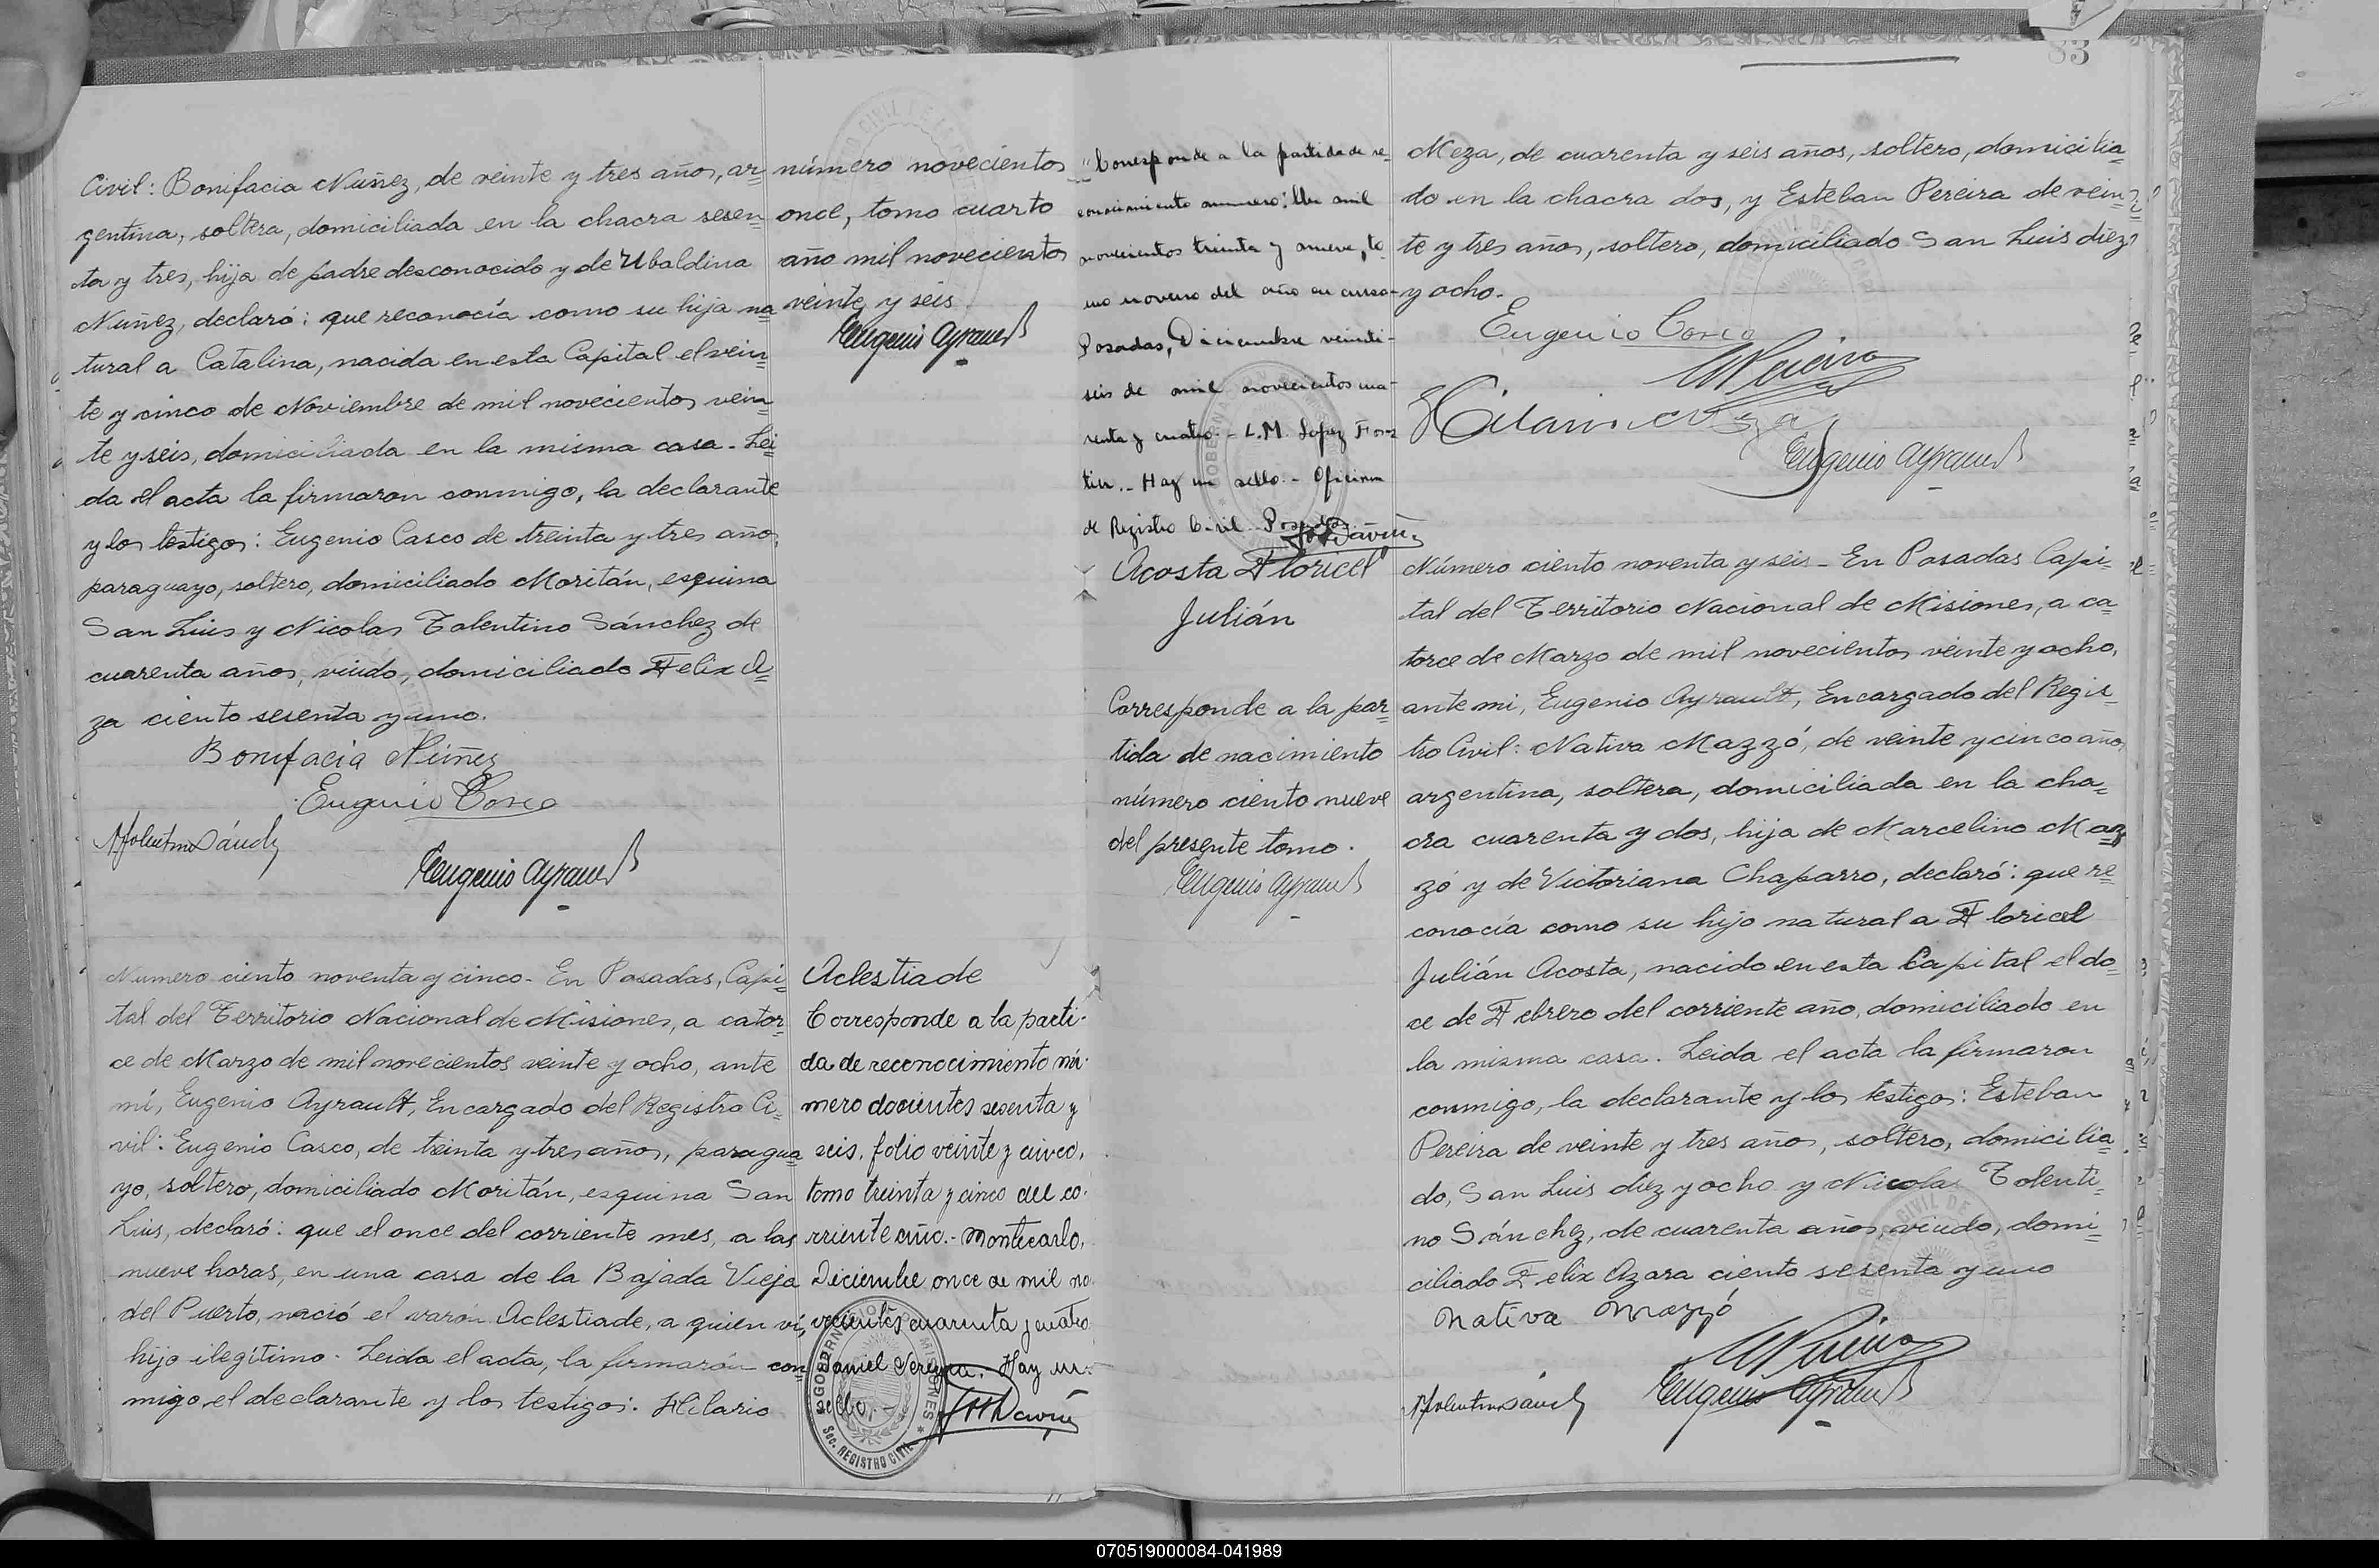 83
Civil: Bonifacia Nuñez, de veinte y tres años, ar=
gentina, soltera, domiciliada en la chacra sesen=
ta y tres, hija de padre desconocido y de Ubaldina
Nuñez, declaró: que reconocía como su hija na=
tural a Catalina, nacida en esta Capital el vein=
te y cinco de Noviembre de mil novecientos vein=
te y seis, domiciliada en la misma casa - Leí=
da el acta la firmaron conmigo, la declarante
y los testigos: Eugenio Casco de treinta y tres años,
paraguayo, soltero, domiciliado Moritán, esquina
San Luis y Nicolas Tolentino Sánchez de
cuarenta años, viudo, domiciliado Felix A=
za ciento sesenta y uno.
Bonifacia Núñez
Eugenio Casco
N Tolentino Sánch
Eugenio Ayrault
número novecientos
once, tomo cuarto
año mil novecientos
veinte y seis
Eugenio Ayrault
Numero ciento noventa y cinco - En Posadas, Capi=
tal del Territorio Nacional de Misiones, a cator=
ce de Marzo de mil novecientos veinte y ocho, ante
mí, Eugenio Ayrault, Encargado del Registro Ci=
vil: Eugenio Casco, de treinta y tres años, paragua=
yo, soltero, domiciliado Moritán, esquina San
Luis, declaró: que el once del corriente mes, a las
nueve horas, en una casa de la Bajada Vieja
del Puerto, nació el varón Aclestiade, a quien ví,
hijo ilegítimo - Leida el acta, la firmarón con=
migo, el declarante y los testigos: Hilario
Aclestiade
Corresponde a la parti-
da de reconocimiento nú-
mero docientos sesenta y
seis, folio veinte y cinco,
tomo treinta y cinco del co-
rriente año.- Montecarlo,
Diciembre once de mil no-
vecientos cuarenta y cuatro
Daniel Hay un
sello.-
GOBERNACION MISIONES
Sec. REGISTRO CIVIL
"Corresponde a la partida de re-
conocimiento número: Un mil
novecientos treinta y nueve, to-
mo noveno del año en curso-
Posadas, Diciembre veinti-
seis de mil novecientos cua-
renta y cuatro.- L.M. Lopez For
tin.- Hay un sello.- Oficina
de Registro Civil. Posadas
Acosta Floricel
Julián
Corresponde a la par=
tida de nacimiento
número ciento nueve
del presente tomo.
Eugenio Ayrault
Meza, de cuarenta y seis años, soltero, domicilia=
do en la chacra dos, y Esteban Pereira de vein=
te y tres años, soltero, domiciliado San Luis diez
y ocho.
Eugenio Casco
E Pereira
Hilario Meza
Eugenio Ayrault
Número ciento noventa y seis - En Posadas Capi=
tal del Territorio Nacional de Misiones, a ca=
torce de Marzo de mil novecientos veinte y ocho,
ante mi, Eugenio Ayrault, Encargado del Regis=
tro Civil: Nativa Mazzó, de veinte y cinco años
argentina, soltera, domiciliada en la cha=
cra cuarenta y dos, hija de Marcelino Maz=
zó y de Victoriana Chaparro, declaró: que re=
conocía como su hijo natural a Floricel
Julián Acosta, nacido en esta Capital el do=
ce de Febrero del corriente año, domiciliado en
la misma casa. Leida el acta la firmaron
conmigo, la declarante y los testigos: Esteban
Pereira de veinte y tres años, soltero, domicilia=
do, San Luis diez y ocho y Nicolas Tolenti=
no Sánchez, de cuarenta años, viudo, domi=
ciliado Felix Azara ciento sesenta y uno
Nativa Mazzó
E Pereira
N Tolentino Sánch
Eugenio Ayrault
070519000084-041989